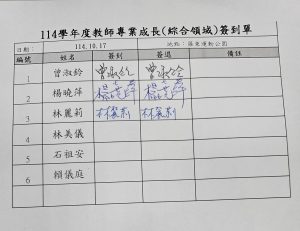 114學年度教師專業成長(綜合領域)簽到單
日期: 114.10.17 地點: 羅東運動公園
編號 姓名 簽到 簽退 備註
1 曾淑鈴 曾淑鈴 曾淑鈴
2 楊曉萍 楊曉萍 楊曉萍
3 林麗莉 林麗莉 林麗莉
4 林美儀
5 石祖安
6 賴儀庭